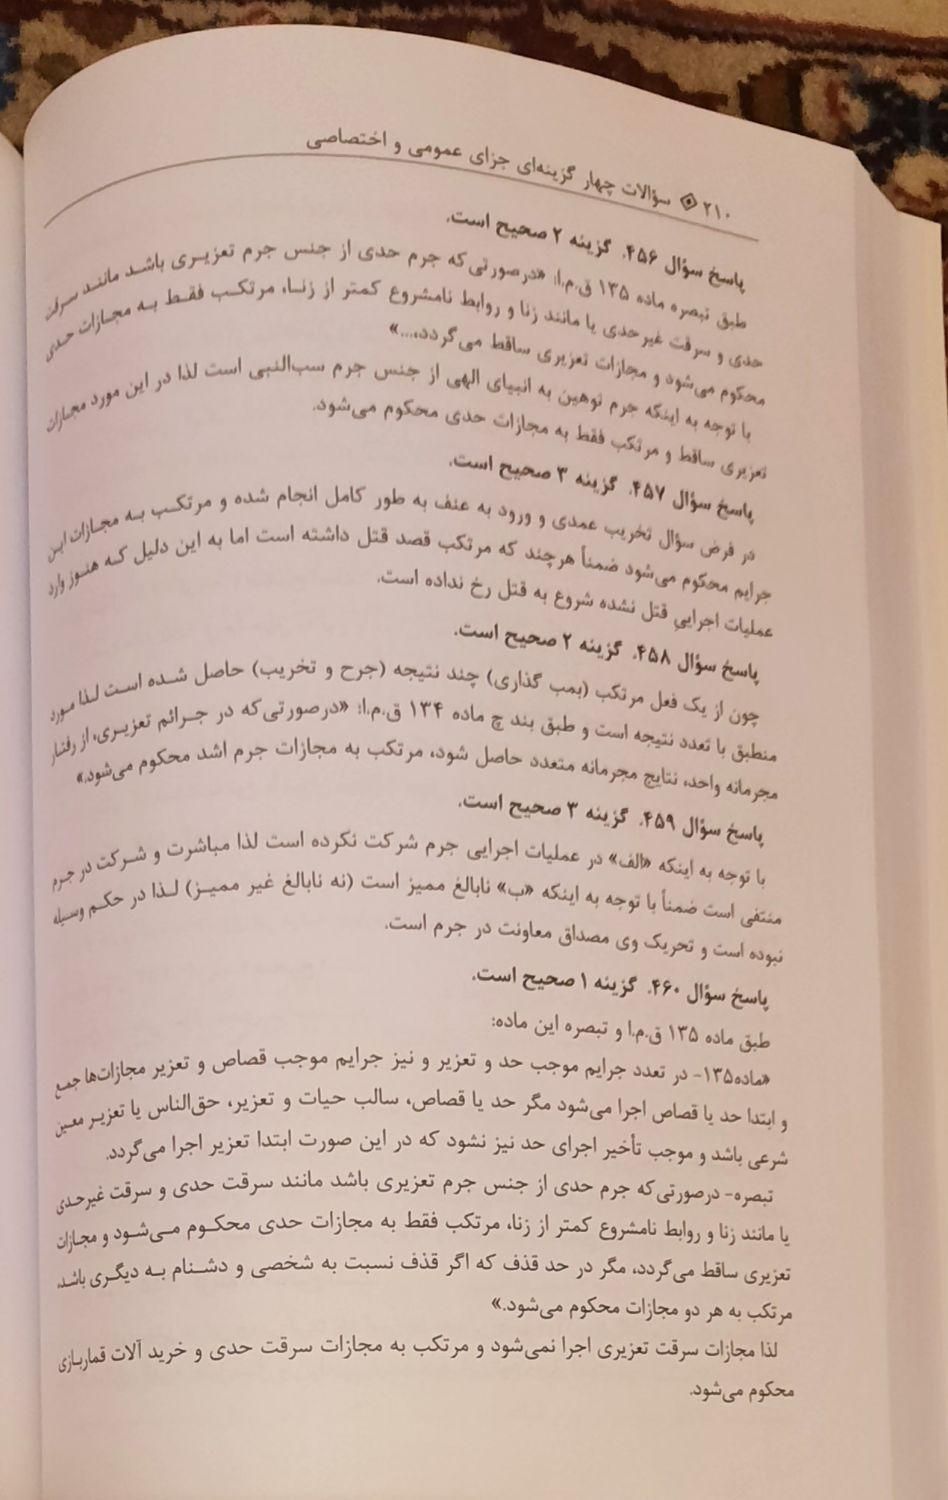 ۲۱۰ ◈ سؤالات چهار گزینه‌ای جزای عمومی و اختصاصی
پاسخ سؤال ۴۵۶. گزینه ۲ صحیح است.
طبق تبصره ماده ۱۳۵ ق.م.ا: «درصورتی‌که جرم حدی از جنس جرم تعزیری باشد مانند سرقت
حدی و سرقت غیرحدی یا مانند زنا و روابط نامشروع کمتر از زنا، مرتکب فقط به مجازات حدی
محکوم می‌شود و مجازات تعزیری ساقط می‌گردد،...»
با توجه به اینکه جرم توهین به انبیای الهی از جنس جرم سب‌النبی است لذا در این مورد مجازات
تعزیری ساقط و مرتکب فقط به مجازات حدی محکوم می‌شود.
پاسخ سؤال ۴۵۷. گزینه ۳ صحیح است.
در فرض سؤال تخریب عمدی و ورود به عنف به طور کامل انجام شده و مرتکب به مجازات این
جرایم محکوم می‌شود ضمناً هرچند که مرتکب قصد قتل داشته است اما به این دلیل که هنوز وارد
عملیات اجرایی قتل نشده شروع به قتل رخ نداده است.
پاسخ سؤال ۴۵۸. گزینه ۲ صحیح است.
چون از یک فعل مرتکب (بمب گذاری) چند نتیجه (جرح و تخریب) حاصل شده است لذا مورد
منطبق با تعدد نتیجه است و طبق بند چ ماده ۱۳۴ ق.م.ا: «درصورتی‌که در جرائم تعزیری، از رفتار
مجرمانه واحد، نتایج مجرمانه متعدد حاصل شود، مرتکب به مجازات جرم اشد محکوم می‌شود.»
پاسخ سؤال ۴۵۹. گزینه ۳ صحیح است.
با توجه به اینکه «الف» در عملیات اجرایی جرم شرکت نکرده است لذا مباشرت و شرکت در جرم
منتفی است ضمناً با توجه به اینکه «ب» نابالغ ممیز است (نه نابالغ غیر ممیز) لذا در حکم وسیله
نبوده است و تحریک وی مصداق معاونت در جرم است.
پاسخ سؤال ۴۶۰. گزینه ۱ صحیح است.
طبق ماده ۱۳۵ ق.م.ا و تبصره این ماده:
«ماده۱۳۵- در تعدد جرایم موجب حد و تعزیر و نیز جرایم موجب قصاص و تعزیر مجازات‌ها جمع
و ابتدا حد یا قصاص اجرا می‌شود مگر حد یا قصاص، سالب حیات و تعزیر، حق‌الناس یا تعزیر معین
شرعی باشد و موجب تأخیر اجرای حد نیز نشود که در این صورت ابتدا تعزیر اجرا می‌گردد.
تبصره- درصورتی‌که جرم حدی از جنس جرم تعزیری باشد مانند سرقت حدی و سرقت غیرحدی
یا مانند زنا و روابط نامشروع کمتر از زنا، مرتکب فقط به مجازات حدی محکوم می‌شود و مجازات
تعزیری ساقط می‌گردد، مگر در حد قذف که اگر قذف نسبت به شخصی و دشنام به دیگری باشد،
مرتکب به هر دو مجازات محکوم می‌شود.»
لذا مجازات سرقت تعزیری اجرا نمی‌شود و مرتکب به مجازات سرقت حدی و خرید آلات قماربازی
محکوم می‌شود.